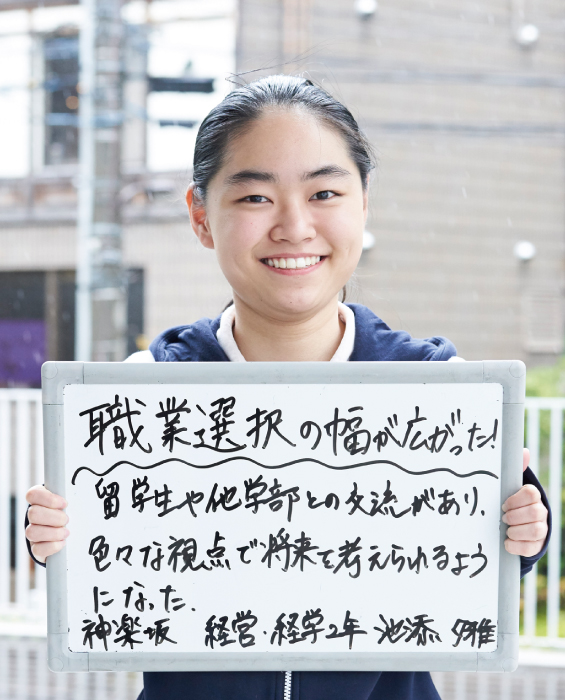 職業選択の幅が広がった!
留学生や他学部との交流があり、
色々な視点で将来を考えられるよう
になった.
神楽坂 経営・経学2年 池添 夕雅